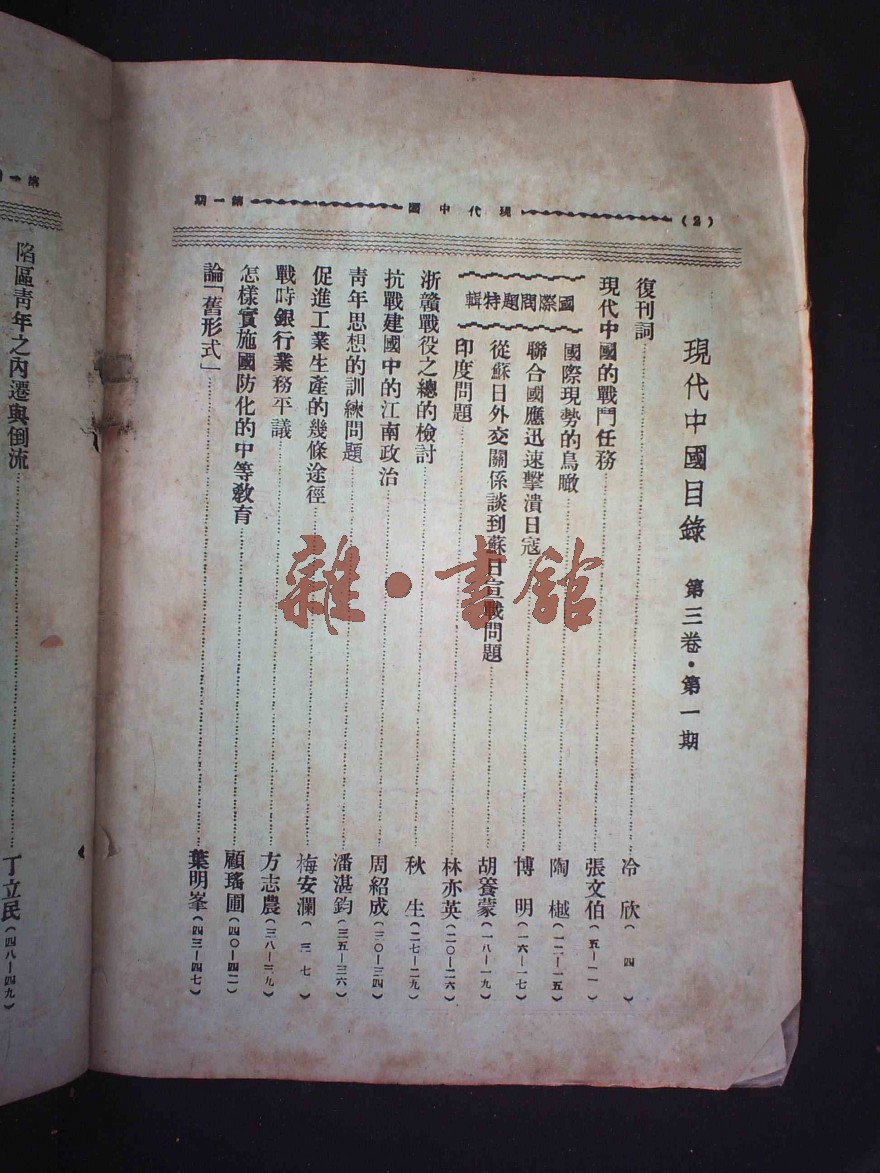 (2) 現代中國 第一期
現代中國目錄 第三卷·第一期
復刊詞 冷欣(四)
現代中國的戰鬥任務 張文伯(五—一一)
國際問題特輯
國際現勢的鳥瞰 陶樾(一二—一五)
聯合國應迅速擊潰日寇 博明(一六—一七)
從蘇日外交關係談到蘇日宣戰問題 胡簺蒙(一八—一九)
印度問題 林亦英(二〇—二六)
浙贛戰役之總的檢討 秋生(二七—二九)
抗戰建國中的江南政治 周紹成(三〇—三四)
靑年思想的訓練問題 潘湛鈞(三五—三六)
促進工業生產的幾條途徑 梅安瀾(三七)
戰時銀行業務平議 方志農(三八—三九)
怎樣實施國防化的中等敎育 顧瑤圃(四〇—四二)
論「舊形式」 葉明峯(四三—四七)
第一
陷區靑年之內遷與倒流 丁立民(四八—四九)
雜·書館